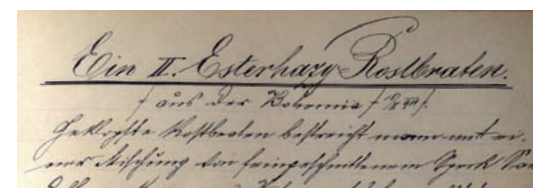 Ein II. Esterhazy-Rostbraten.
/ aus der Bohemia /
Geklopfte Rostbraten bestreicht man mit ei-
ner Mischung von feingeschnittenem Speck